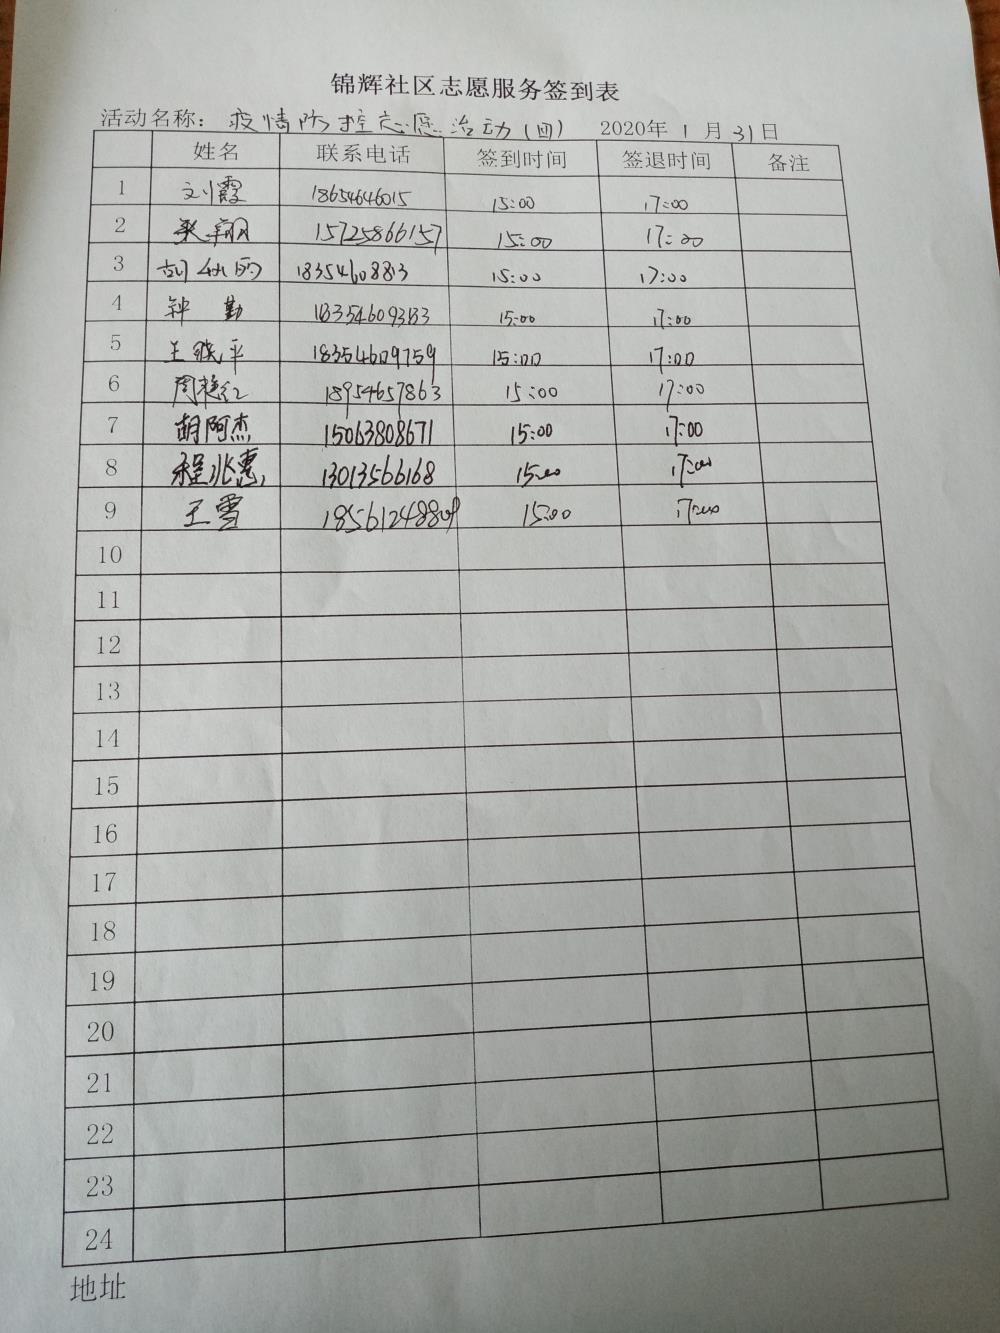 锦辉社区志愿服务签到表
活动名称：疫情防控志愿活动(四) 2020年1月31日
姓名 联系电话 签到时间 签退时间 备注
1 刘霞 18654646015 15:00 17:00
2 15725866157 15:00 17:00
3 18354608813 15:00 17:00
4 钟勤 15:00 17:00
5 王晓平 18354609759 15:00 17:00
6 周艳红 18954657863 15:00 17:00
7 胡阿杰 15063808671 15:00 17:00
8 程兆惠 13013566168 15:00 17:00
9 王雪 15:00 17:00
10
11
12
13
14
15
16
17
18
19
20
21
22
23
24
地址